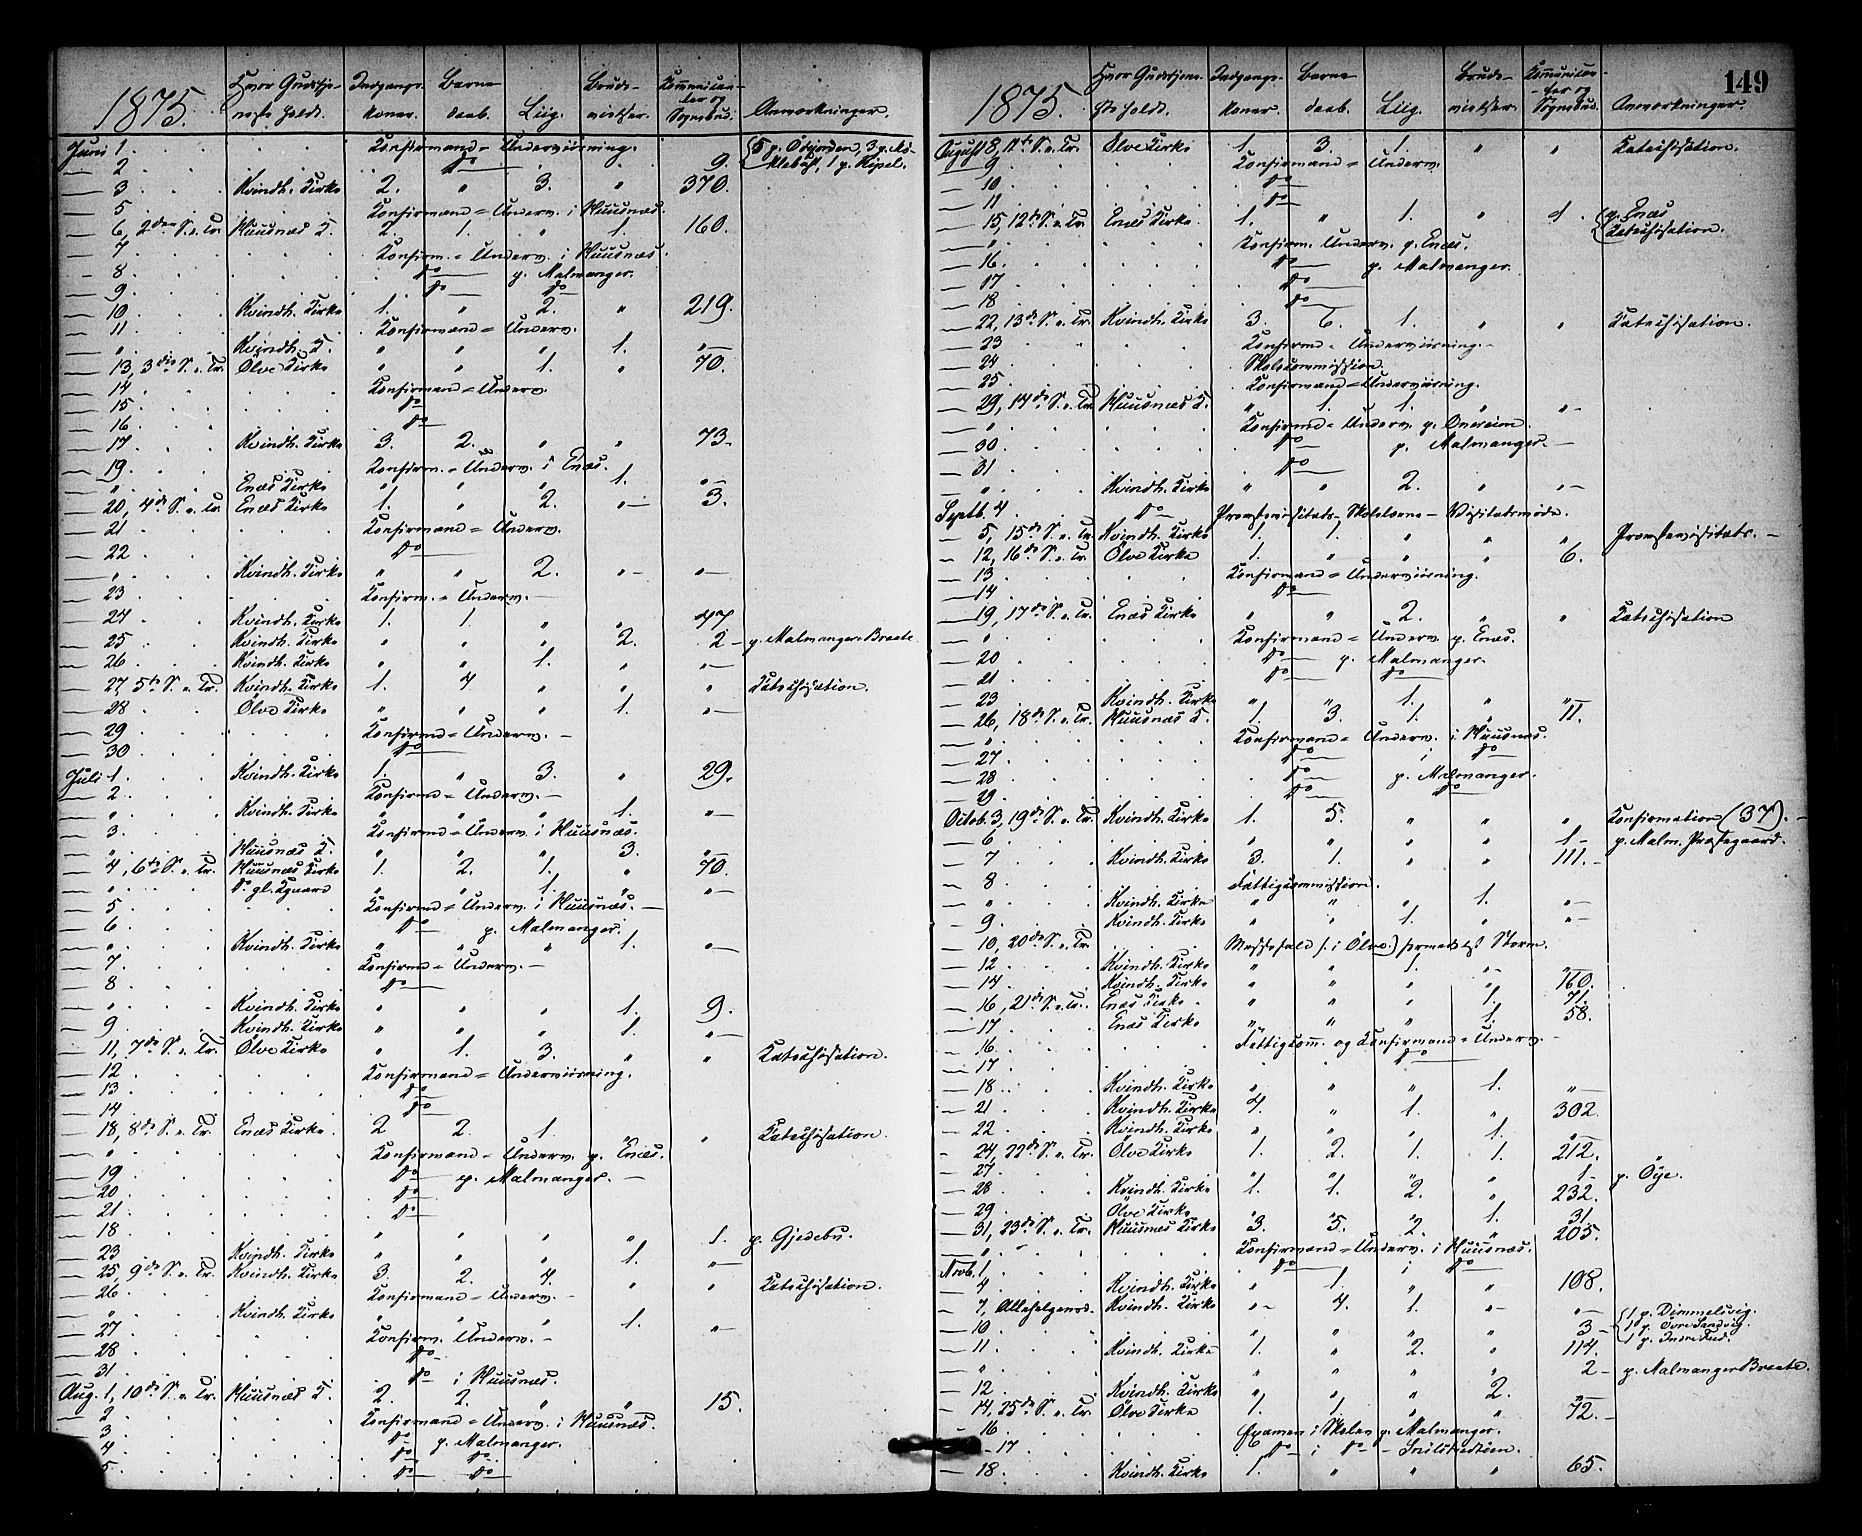 149
1875. Hvor Gudstje- Indgangs- Barne- Brude- Communican-
neste holdt. koner. daab. Liig. vielser. ter og Sognebud. Anmærkninger.
Juni 1. Konfirmand = Underviisning.
2. do 9. 5 p. Ødejorden, 3 p.
3. Kvindh. Kirke 2. " 3. " 370.
5 Konfirmand = Underv. i Huusnæs.
6, 2den S. e. Tr. Huusnæs K. 2. 1. " 1. 160.
7. Konfirm. = Underv. i Huusnæs.
8. do p. Malmanger.
9. do do
10 Kvindh. Kirke 1. " 2. " 219.
11. Konfirmand = Underv.
" Kvindh. K. " " " 1. "
13, 3die S. e. Tr. Ølve Kirke " " 1. " 70.
14 Konfirmand = Underv.
15. do
16. do
17. Kvindh. Kirke 3. 2. " " 73.
19. Konfirm. = Underv. i Enæs.
" Enæs Kirke " " " 1. "
20, 4de S. e. Tr. Enæs Kirke 1. " 2. " 3.
21 Konfirmand = Underv.
22. do
" Kvindh. Kirke " " 2. " "
23 Konfirm. = Underv.
24. Kvindh. Kirke 1. 1. " " 47
25 Kvindh. Kirke " " " 2. 2 p. Malmanger Breete
26 Kvindh. Kirke " " 1. " "
27, 5te S. e. Tr. Kvindh. Kirke 1. 4 " " " Katechisation.
28 Ølve Kirke " " " 1. "
29 Konfirmd = Underv.
30 do
Juli 1. Kvindh. Kirke 1. " 3. " 29.
2. Konfirmd = Underv.
" Kvindh. Kirke " " " 1. "
3. Konfirmd = Underv. i Huusnæs.
" Huusnæs K. " " " 3. "
4, 6te S. e. Tr. Huusnæs Kirke 1. 2. 1. " 70.
" do gl. Kgaard " " 1. " "
5 Konfirmand = Underv. i Huusnæs.
6 do p. Malmanger.
" Kvindh. Kirke " " " 1. "
7. Konfirmd = Underv.
8. do
" Kvindh. Kirke " " " 1. 9.
9. Kvindh. Kirke " " " 1. "
11, 7de S. e. Tr. Ølve Kirke " 1. 3. " " Katechisation.
12 Konfirmand = Underviisning.
13. do
14 do
18, 8de S. e. Tr. Enæs Kirke 2 2. 1. " " Katechisation.
" Konfirmand = Underv. p. Enæs.
19 do p. Malmanger.
20. do
21. do
18 " " " " 1. p. Gjedebu.
23 Kvindh. Kirke " " " 1. "
25, 9de S. e. Tr. Kvindh. Kirke 3. 2. 4. " " Katechisation.
26 Konfirmand = Underv.
" Kvindh. Kirke " " " 1. "
27 Konfirm. Underv.
28 do
31. do i Huusnæs.
Aug. 1, 10de S. e. Tr. Huusnæs K. 2. 2. " " 15.
2 Konfirmand = Underv. i Huusnæs.
3 do p. Malmanger.
4 do do
5. do do
1875. Hvor Gudstjene- Indgangs- Barne- Brude- Communican-
ste holdt. koner. daab. Liig. vielser. ter og Sognebud. Anmærkninger.
August 8, 11te S. e. Tr. Ølve Kirke 1. 3. 1. " " Katechisation.
9 Konfirmand = Underv.
10 do
11. do
15, 12te S. e. Tr. Enæs Kirke 1. " 1. " 1. p. Enæs
Katechisation.
" Konfirm. Underv. p. Enæs.
16. do p. Malmanger.
17 do
18 do
22, 13de S. e. Tr. Kvindh. Kirke 3. 6. 1. " " Katechisation.
23 Konfirmd = Underviisning.
24 Skolekommission
25. Konfirmand = Underviisning.
29, 14de S. e. Tr. Huusnæs K. " 1. 1. " "
" Konfirmd = Underv. p. Onereim
30. do p. Malmanger.
31 do
" Kvindh. Kirke " " 2. " "
Septb. 4. do Provstevisitats, Skolelærer- Visitatsmøde.
5, 15de S. e. Tr. Kvindh. Kirke 1. 1. " " " Provstevisitats.
12, 16de S. e. Tr. Ølve Kirke 1. " " " 6.
13 Konfirmand = Underviisning.
14. do
19, 17de S. e. Tr. Enæs Kirke " " 2. " " Katechisation
" Konfirmand = Underv. p. Enæs.
20 do p. Malmanger.
21. do do
23 Kvindh. Kirke " " 1. " "
26, 18de S. e. Tr. Huusnæs K. 1. 3. 1. " 11.
" Konfirmand = Underv. i Huusnæs.
27. do i do
28 do p. Malmanger.
29. do do
Octob. 3, 19de S. e. Tr. Kvindh. Kirke 1. 5. " " " Konfirmation (37).
6. " " " " 1 p. Malm. Prestegaard.
7 Kvindh. Kirke 3. 1. " " 111.
8 Fattigkommission.
" Kvindh. Kirke " " " 1. "
9. Kvindh. Kirke " " 1. " "
10, 20de S. e. Tr. Messefald (: i Ølve:) formedelst Storm.
12 Kvindh. Kirke " " 1. " "
14 Kvindh. Kirke " " " " 160.
16, 21de S. e. Tr. Enæs Kirke. " " " 1. 71.
17. Enæs Kirke " " " 1. 58.
16. Fattigkom. og Konfirmand = Underv.
17. do
18 Kvindh. Kirke " " " 1. "
21 Kvindh. Kirke 4. " 1. " 302.
22 Kvindh. Kirke " " " 1. "
24, 22de S. e. Tr. Ølve Kirke 1. 2. 1. 1. 212.
27. " " " " 1. p. Øye.
28 Kvindh. Kirke 1. 1. 2. " 232.
29. Ølve Kirke " " " 1. 31
31, 23de S. e. Tr. Huusnæs Kirke 3. 5. 2. " 205.
" Konfirmand = Underv. i Huusnæs.
Novb. 1 do i do
4 Kvindh. Kirke " 1. " " 108.
7, Allehelgensd. Kvindh. Kirke " 4. 1. " " 1 p. Dimmelsvig.
10 " " " " 3 1 p. Øvre Sandvig.
11. Kvindh. Kirke 1. " 2. " 114. 1 p. Indre
" " " " " 2 p. Malmanger Breete.
12 Kvindh. Kirke " " " 2. "
14, 25de S. e. Tr. Ølve Kirke 1. 1. " " 72.
16 Examen i Skolen p. Malmanger.
17 do i do
18 Kvindh. Kirke 1. " " " 65.